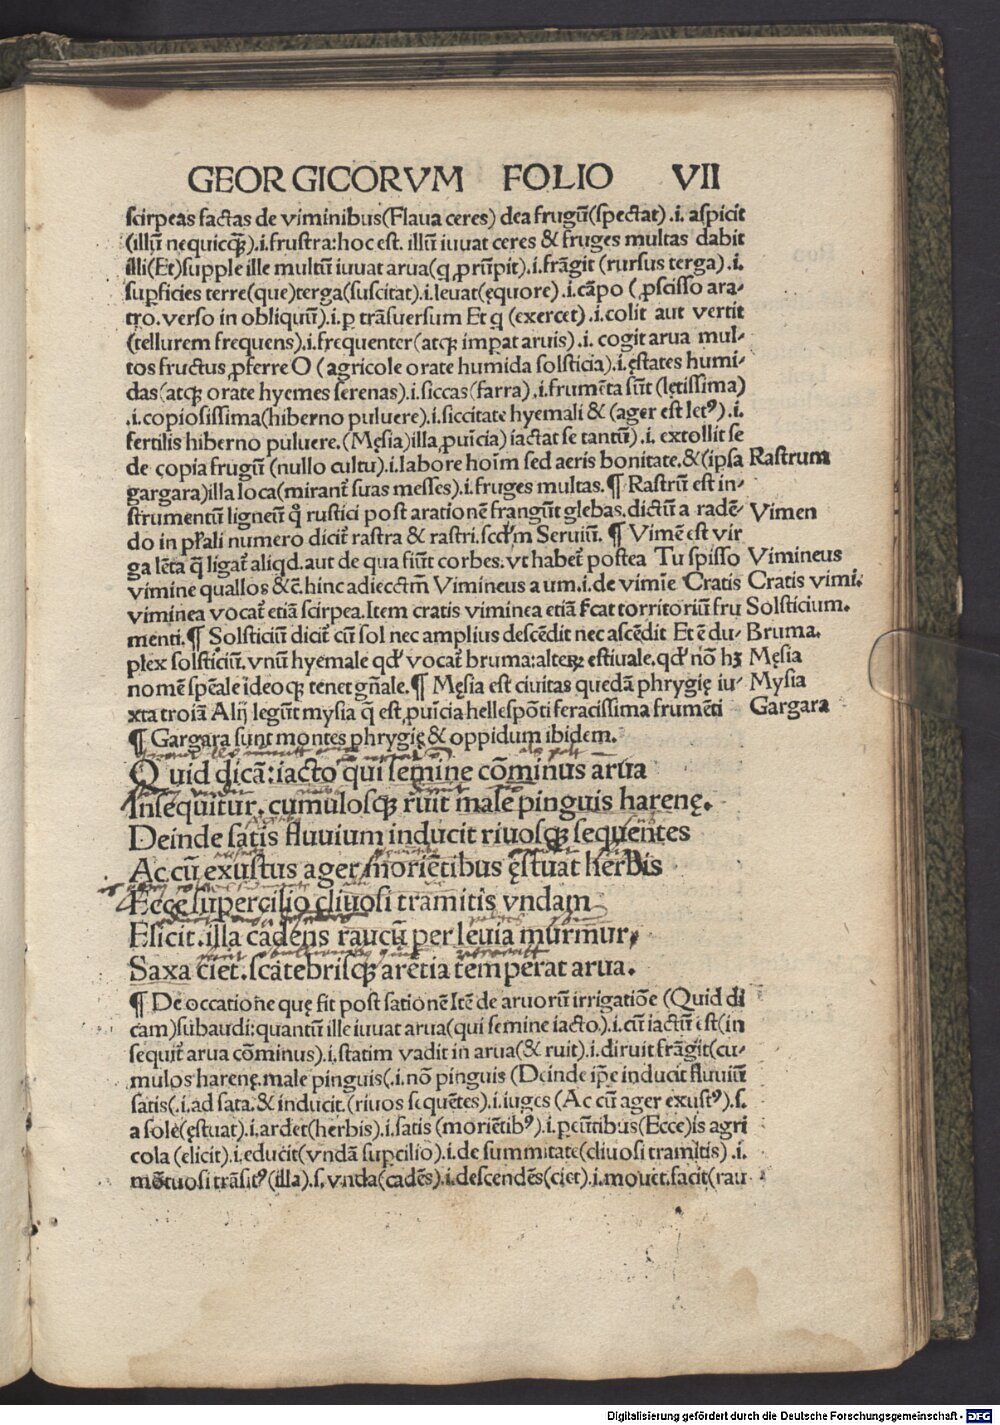 GEORGICORVM FOLIO VII
scirpeas factas de viminibus(Flaua ceres) dea frugū(spectat) .i. aspicit
(illū nequicq̄ꝫ).i.frustra:hoc est. illū iuuat ceres & fruges multas dabit
illi(Et)supple ille multū iuuat arua(q ꝓrūpit).i.frāgit (rursus terga) .i.
suꝑficies terre(que)terga(suscitat).i.leuat(ęquore) .i.cāpo (ꝓscisso ara-
tro. verso in obliquū).i.ꝑ trāsuersum Et q (exercet) .i.colit aut vertit
(tellurem frequens).i.frequenter(atqꝫ impat aruis).i. cogit arua mul-
tos fructus ꝓferre O (agricole orate humida solsticia).i.ęstates humi-
das(atqꝫ orate hyemes serenas).i.siccas(farra).i.frumēta sūt (lętissima)
.i.copiosissima(hiberno puluere).i.siccitate hyemali & (ager est letꝰ).i.
fertilis hiberno puluere.(Męsia)illa ꝓuīcia) iactat se tantū).i. extollit se
de copia frugū (nullo cultu).i.labore hoīm sed aeris bonitate.&(ipsa Rastrum
gargara)illa loca(mirant̄ suas messes).i.fruges multas.¶ Rastrū est in-
strumentū ligneū q̄ rustici post arationē frangūt glebas.dictū a radē- Vimen
do in pl̄rali numero dicit̄ rastra & rastri.scd'm Seruiū. ¶ Vimē est vir
ga lēta q̄ ligat̄ aliqd.aut de qua fiūt corbes.vt habet̄ postea Tu spisso Vimineus
vimine quallos &c̄.hinc adiectm̄ Vimineus a um.i.de vimīe Cratis Cratis vimi.
viminea vocat̄ etiā scirpea.Item cratis viminea etiā s̄cat torritoriū fru Solsticium.
menti.¶ Solsticiū dicit̄ cū sol nec amplius descēdit nec ascēdit Et ē du- Bruma.
plex solsticiū.vnū hyemale qd' vocat̄ bruma:alteꝝ estiuale.qd' nō hꝫ Męsia
nomē spēale ideoqꝫ tenet gn̄ale.¶ Męsia est ciuitas quedā phrygię iu- Mysia
xta troiā Alij legūt mysia q̄ est ꝓuīcia hellespōti feracissima frumēti Gargara
¶ Gargara sunt montes phrygię & oppidum ibidem.
Quid dicā:iacto qui semine cōminus arua
Insequitur.cumulosqꝫ ruit male pinguis harenę.
Deinde satis fluuium inducit riuosqꝫ sequentes
Ac cū exustus ager moriētibus ęstuat herbis
Ecce supercilio cliuosi tramitis vndam
Elicit.illa cadens raucū per leuia murmur,
Saxa ciet.scatebrisqꝫ aretia temperat arua.
¶ De occatione quę fit post sationē Itē de aruorū irrigatiōe (Quid di
cam)subaudi:quantū ille iuuat arua(qui semine iacto).i.cū iactū est(in
sequit̄ arua cōminus).i.statim vadit in arua(& ruit).i.diruit frāgit(cu-
mulos harenę.male pinguis(.i.nō pinguis (Deinde ip̄e inducit fluuiū
satis(.i.ad sata.& inducit.(riuos sequētes).i.iuges (Ac cū ager exustꝰ).s.
a sole(ęstuat).i.ardet(herbis).i.satis (moriētibꝰ).i.pe͞utibus(Ecce)is agri
cola (elicit).i.educit(vndā supcilio).i.de summitate(cliuosi tramitis) .i.
mōtuosi trāsitꝰ(illa).s.vnda(cadēs).i.descendēs(ciet).i.mouet.facit(rau
Digitalisierung gefördert durch die Deutsche Forschungsgemeinschaft - DFG